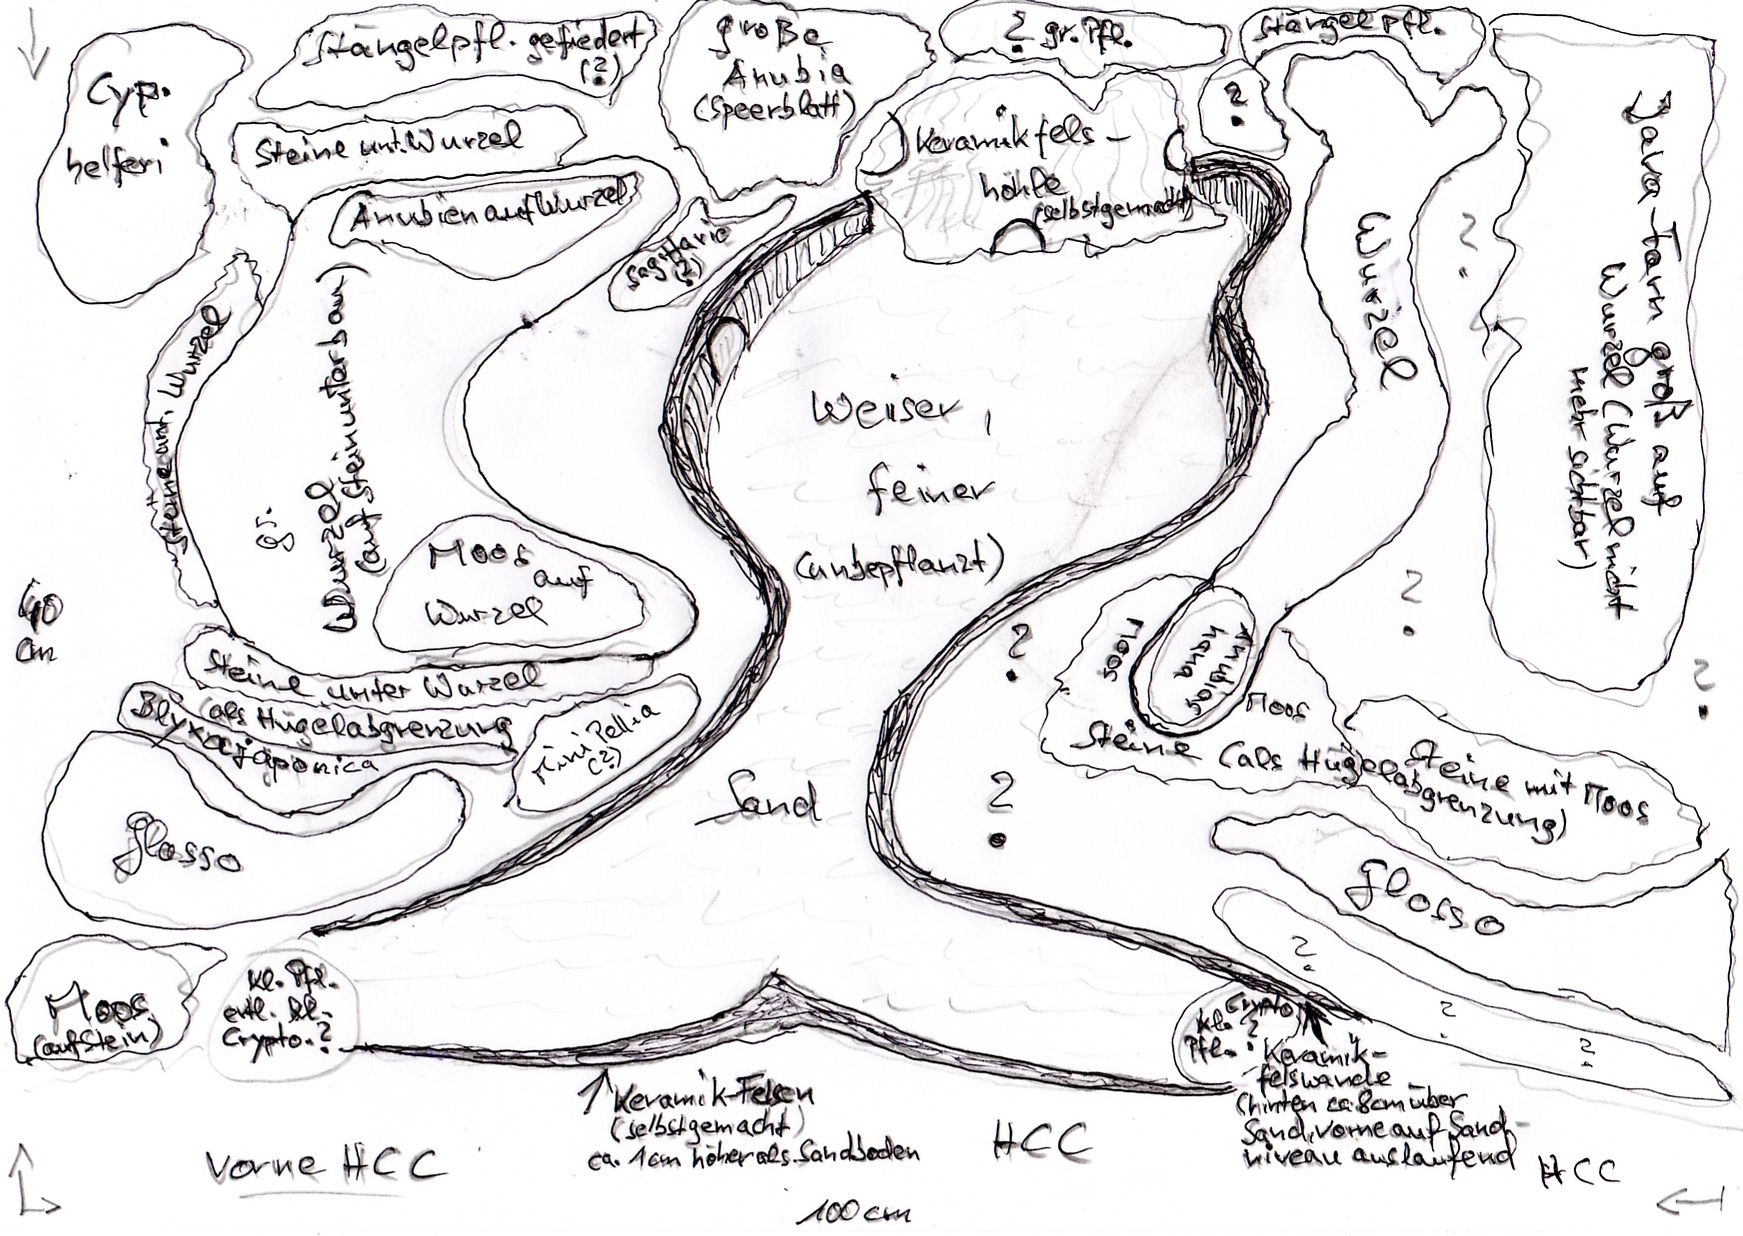 Stängelpfl. gefiedert
(?)
große
Anubia
(Speerblatt)
? gr. Pfl.
Stängelpfl.
Cyp.
helferi
Steine unt. Wurzel
Anubien auf Wurzel
Sagittarie
(?)
Keramikfels-
höhle
(selbstgemacht)
?
Wurzel
?
Java-Farn groß auf
Wurzel (Wurzel nicht
mehr sichtbar)
Steine unt. Wurzel
gr.
Wurzel
(auf Steinunterbau)
Moos
auf
Wurzel
Weiser,
feiner
(unbepflanzt)
Sand
40
cm
Steine unter Wurzel
(als Hügelabgrenzung
Blyxa japonica
Mini Pellia
(?)
Glosso
?
?
?
?
Moos
Anubias
nana
Moos
Steine (als Hügelabgrenzung)
Steine mit Moos
Glosso
?
?
?
Moos
(auf Stein)
kl. Pfl.
evtl. kl.
Crypto.?
Crypto
kl. ?
Pfl.
Keramik-
felswände
(hinten ca. 8cm über
Sand, vorne auf Sand-
niveau auslaufend
Keramik-Felsen
(selbstgemacht)
ca. 1cm höher als Sandboden
vorne HCC
HCC
HCC
100 cm